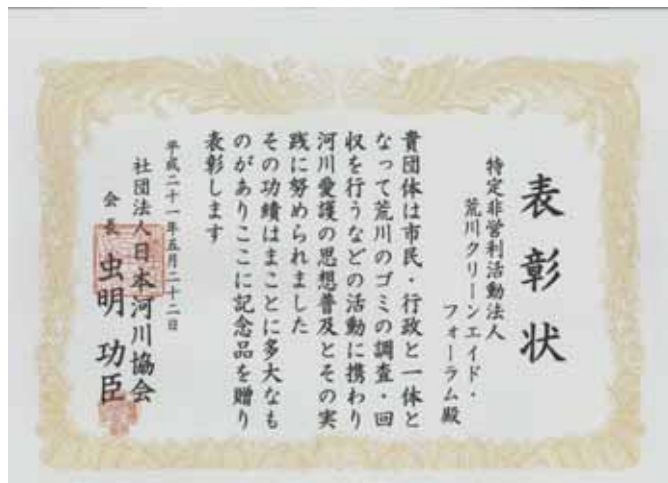 表彰状
特定非営利活動法人
荒川クリーンエイド・
フォーラム殿
貴団体は市民・行政と一体と
なって荒川のゴミの調査・回
収を行うなどの活動に携わり
河川愛護の思想普及とその実
践に努められました
その功績はまことに多大なも
のがありここに記念品を贈り
表彰します
平成二十一年五月二十二日
社団法人日本河川協会
会長 虫明功臣